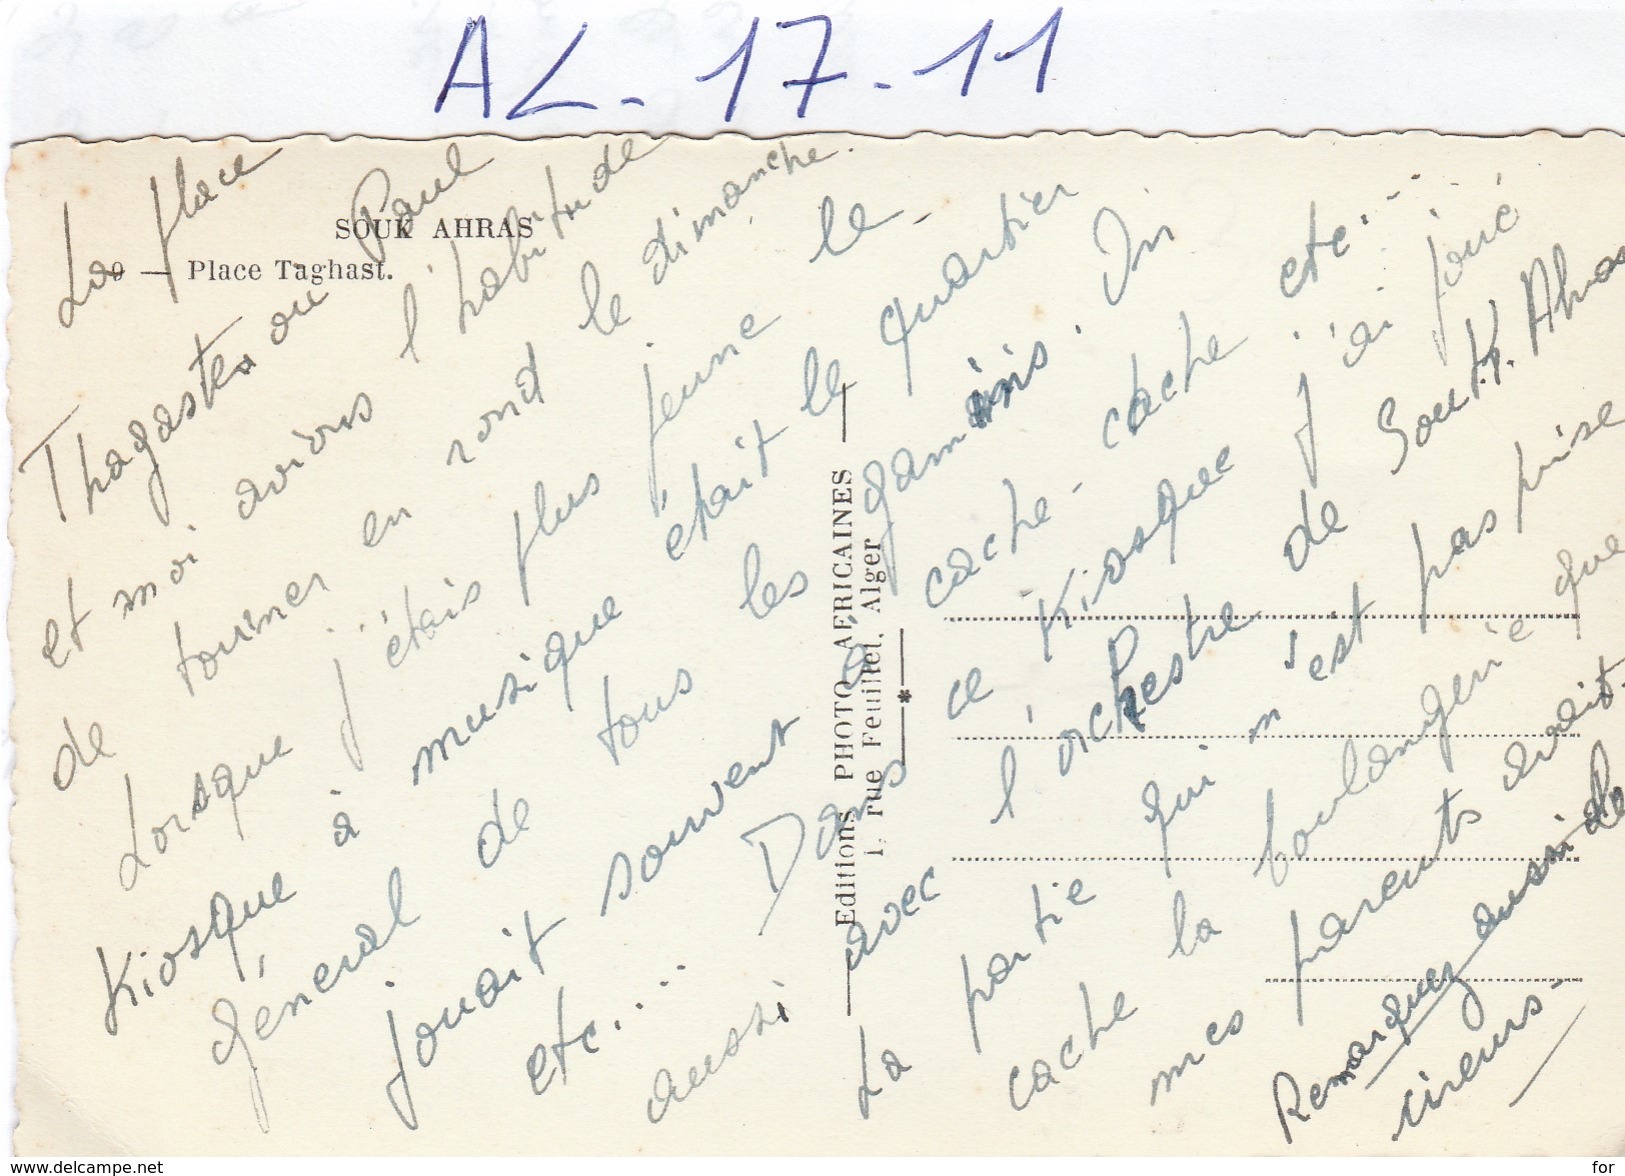 AL-17-11
SOUK AHRAS
9 — Place Taghast.
Editions PHOTO AFRICAINES
1, rue Feuillet, Alger
La place
Thagaste ou Paul
et moi avions l'habitude
de tourner en rond le dimanche.
Lorsque j'étais plus jeune le
Kiosque à musique était le quartier
général de tous les gamins. On
jouait souvent à cache-cache etc....
etc.... Dans ce Kiosque j'ai joué
aussi avec l'orchestre de Souk. Ahras
La partie qui n'est pas prise
cache la boulangerie que
mes parents avait.
Remarquez aussi le
cireurs-
www.delcampe.net
for